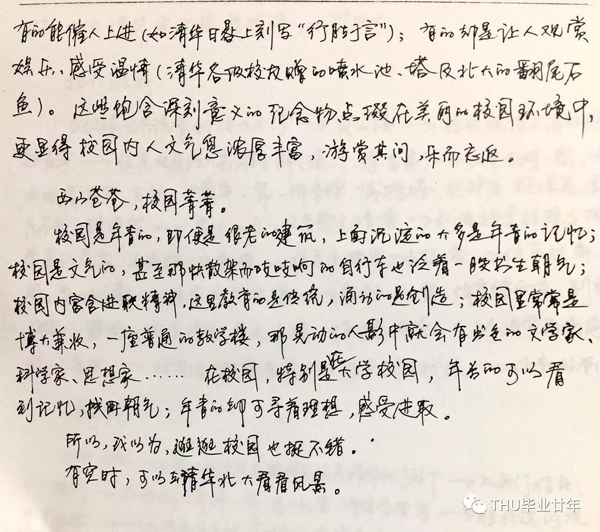 有的能催人上进(如清华日晷上刻写“行胜于言”);有的却是让人观赏
娱乐、感受温情(清华各级校友赠的喷水池、塔及北大的翻尾石
鱼)。这些饱含深刻意义的纪念物点缀在美丽的校园环境中,
更显得校园内人文气息浓厚丰富,游赏其间,乐而忘返。
西山苍苍,校园菁菁。
校园是年青的,即便是很老的建筑,上面沉淀的大多是年青的记忆;
校园是文气的,甚至那快散架而吱吱响的自行车也泛着一股书生朝气;
校园内富含进取精神,这里教育的是传统,涌动的是创造;校园里常常是
博大兼收,一座普通的教学楼,那晃动的人影中就会有出色的文学家、
科学家、思想家……在校园,特别是在大学校园,年长的可以看
到记忆,找回朝气;年青的却可寻着理想,感受进取。
所以,我以为,逛逛校园也挺不错。
有空时,可以去清华北大看看风景。
THU毕业廿年